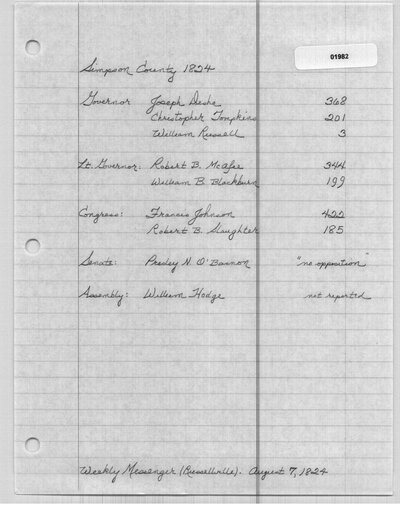 01982
Simpson County 1824
Governor Joseph Desha 368
Christopher Tompkins 201
William Russell 3
Lt. Governor: Robert B. McAfee 344
William B. Blackburn 199
Congress: Francis Johnson 422
Robert B. Slaughter 185
Senate: Presley N. O'Bannon "no opposition"
Assembly: William Hodge not reported
Weekly Messenger (Russellville). August 7, 1824